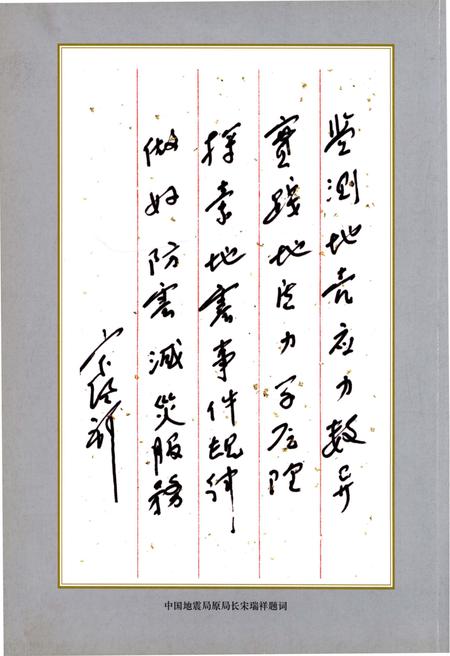 监测地壳应力数异
實践地质力学原理
探索地害事件规律
做好防害减災服務
宋瑞祥
中国地震局原局长宋瑞祥题词